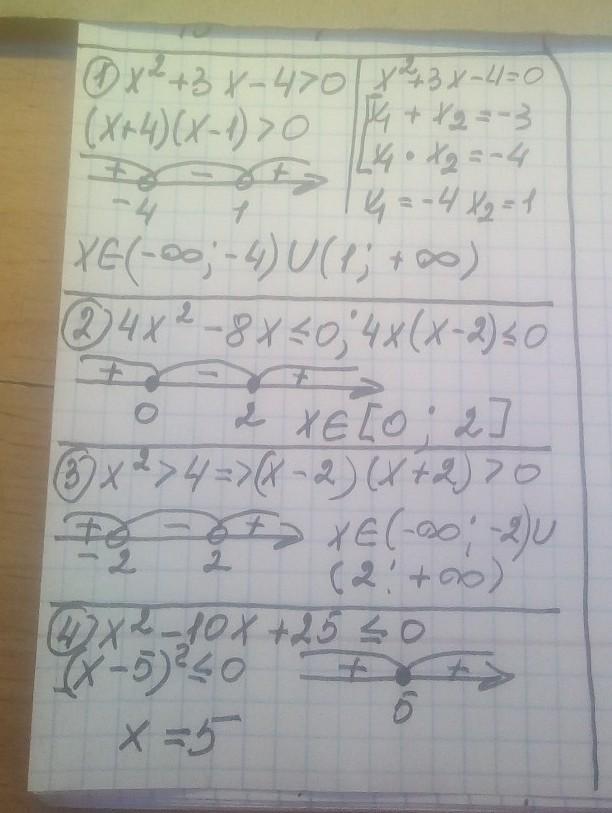 ① x²+3x-4>0
(x+4)(x-1)>0
+ - +
-4 1
x²+3x-4=0
x₁ + x₂ =-3
x₁ • x₂ =-4
x₁ =-4 x₂=1
x∈(-∞;-4)∪(1; +∞)
② 4x² -8x≤0; 4x(x-2)≤0
+ - +
0 2
x∈[0; 2]
③ x²>4=>(x-2)(x+2)>0
+ - +
-2 2
x∈(-∞; -2)∪
(2; +∞)
④ x²-10x+25 ≤0
(x-5)²≤0
+ +
5
x =5